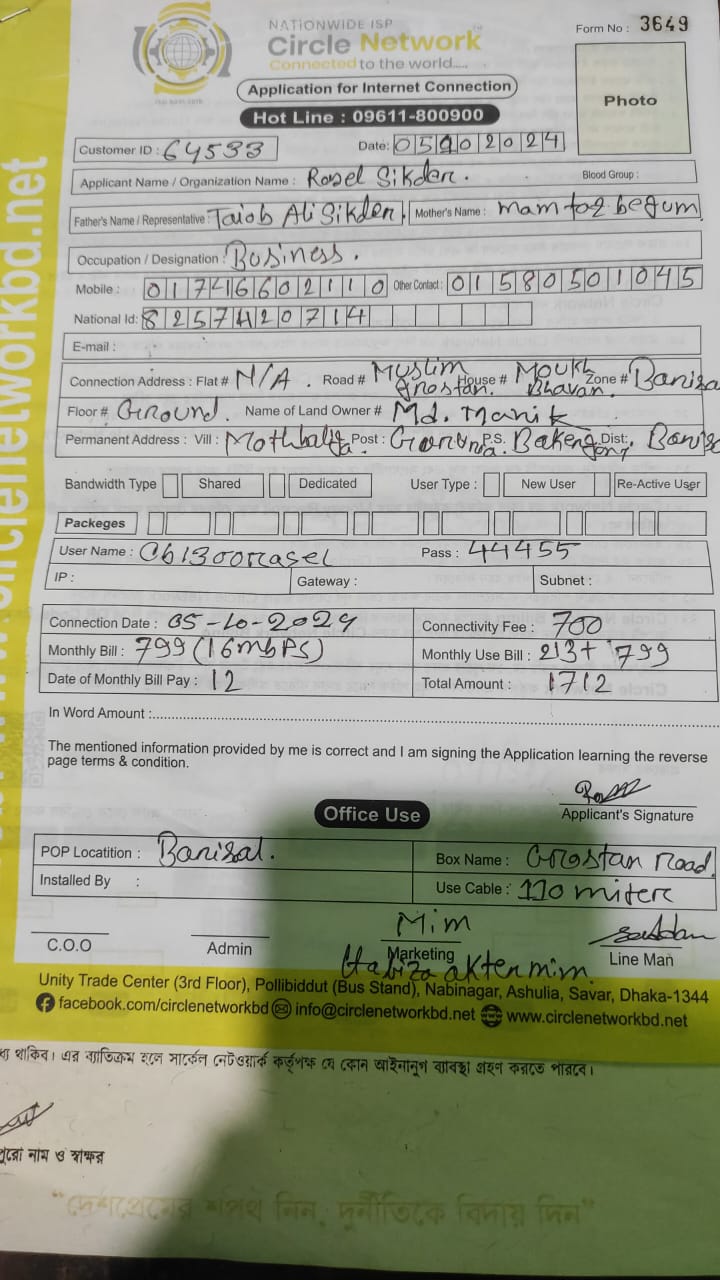 NATIONWIDE ISP
Circle Network
Connected to the world.....
Form No : 3649
Application for Internet Connection
Hot Line : 09611-800900
Photo
Customer ID : 64533 Date: 05102024
Applicant Name / Organization Name : Rasel Sikder. Blood Group :
Father's Name / Representative : Taiob Ali Sikder Mother's Name : mamtaz begum
Occupation / Designation : Business.
Mobile : 01746602110 Other Contact : 01580501045
National Id: 8257420714
E-mail :
Connection Address : Flat # N/A. Road # Muslim Grostan. House # Bhavan. Zone #
Floor # Ground. Name of Land Owner # Md. Manik
Permanent Address : Vill : Post : P.S. Dist:
Bandwidth Type Shared Dedicated User Type : New User Re-Active User
Packeges
User Name : Cb1300rasel Pass : 44455
IP : Gateway : Subnet :
Connection Date : 05-10-2024 Connectivity Fee : 700
Monthly Bill : 799 (16mbPS) Monthly Use Bill : 213+ 799
Date of Monthly Bill Pay : 12 Total Amount : 1712
In Word Amount :
The mentioned information provided by me is correct and I am signing the Application learning the reverse
page terms & condition.
Applicant's Signature
Office Use
POP Locatition : Barisal. Box Name : Grostan road.
Installed By : Use Cable : 110 miter
Mim
C.O.O Admin Marketing Line Man
Habiza akter mim.
Unity Trade Center (3rd Floor), Pollibiddut (Bus Stand), Nabinagar, Ashulia, Savar, Dhaka-1344
facebook.com/circlenetworkbd info@circlenetworkbd.net www.circlenetworkbd.net
থাকিব। এর ব্যতিক্রম হলে সার্কেল নেটওয়ার্ক কর্তৃপক্ষ যে কোন আইনানুগ ব্যাবস্থা গ্রহণ করতে পারবে।
পুরো নাম ও স্বাক্ষর
"দেশপ্রেমের শপথ নিন, দুর্নীতিকে বিদায় দিন"